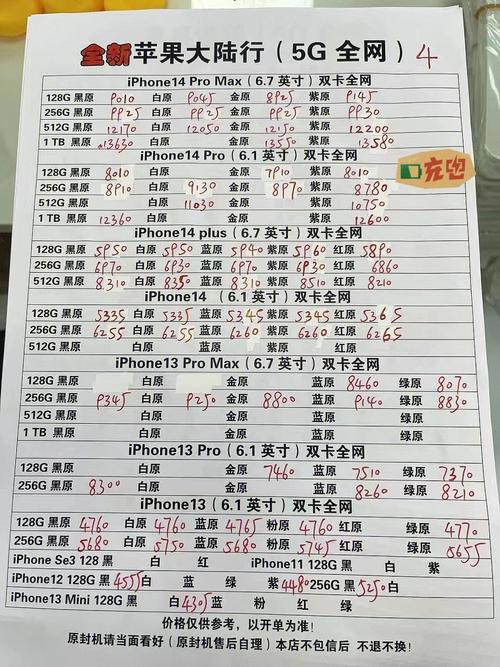 全新苹果大陆行（5G 全网）4
iPhone14 Pro Max（6.7 英寸）双卡全网
128G 黑原 9010 白原 9045 金原 8925 紫原 9145
256G 黑原 9925 白原 9925 金原 9925 紫原 9930
512G 黑原 12170 白原 12050 金原 12150 紫原 12200
1 TB 黑原 13630 白原 金原 13550 紫原 13580
iPhone14 Pro（6.1 英寸）双卡全网
128G 黑原 8010 白原 金原 7910 紫原 8010
256G 黑原 8910 白原 9130 金原 8970 紫原 8780
512G 黑原 白原 11030 金原 紫原 10750
1 TB 黑原 12360 白原 金原 紫原 12600
iPhone14 plus（6.7 英寸）双卡全网
128G 黑原 5950 白原 5950 蓝原 5940 紫原 5960 红原 5890
256G 黑原 6970 白原 6930 蓝原 6970 紫原 6930 红原 6860
512G 黑原 8310 白原 8350 蓝原 8310 紫原 8510 红原 8210
iPhone14 （6.1 英寸）双卡全网
128G 黑原 5335 白原 5335 蓝原 5345 紫原 5345 红原 5365
256G 黑原 6255 白原 6255 蓝原 6260 紫原 6260 红原 6265
512G 黑原 白原 蓝原 紫原 红原
iPhone13 Pro Max（6.7 英寸）双卡全网
128G 黑原 白原 金原 蓝原 8460 绿原 8070
256G 黑原 9345 白原 9250 金原 8800 蓝原 9140 绿原 8830
512G 黑原 白原 金原 蓝原 绿原
1 TB 黑原 白原 金原 蓝原 绿原
iPhone13 Pro（6.1 英寸）双卡全网
128G 黑原 白原 金原 7460 蓝原 7510 绿原 7370
256G 黑原 8300 白原 金原 蓝原 8260 绿原 8210
iPhone13（6.1 英寸）双卡全网
128G 黑原 4760 白原 4760 蓝原 4765 粉原 4760 红原 绿原 4770
256G 黑原 5680 白原 5750 蓝原 5680 粉原 5745 红原 绿原 5655
iPhone Se3 128 黑 白 红 iPhone11 128G 黑 白 紫
iPhone12 128G 黑 4555 白 蓝 绿 紫 4480 256G 黑 5250 白
iPhone13 Mini 128G 黑 白 4305 蓝 粉 红 绿
价格仅供参考，以开单为准！
原封机请当面看好（原封机售后自理）本店不包信后 不退不换！